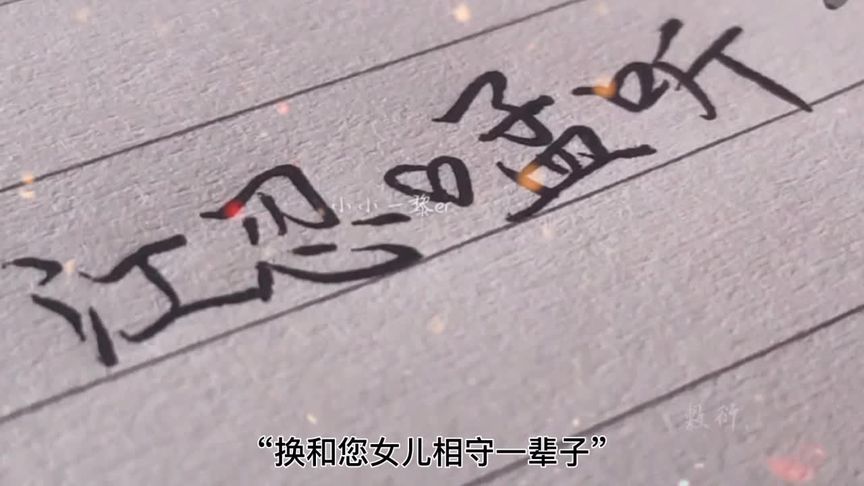 江忍&孟听
小小一黎er
“换和您女儿相守一辈子”